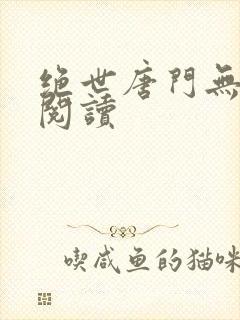 绝世唐门無
閱讀
喫咸鱼的猫咪